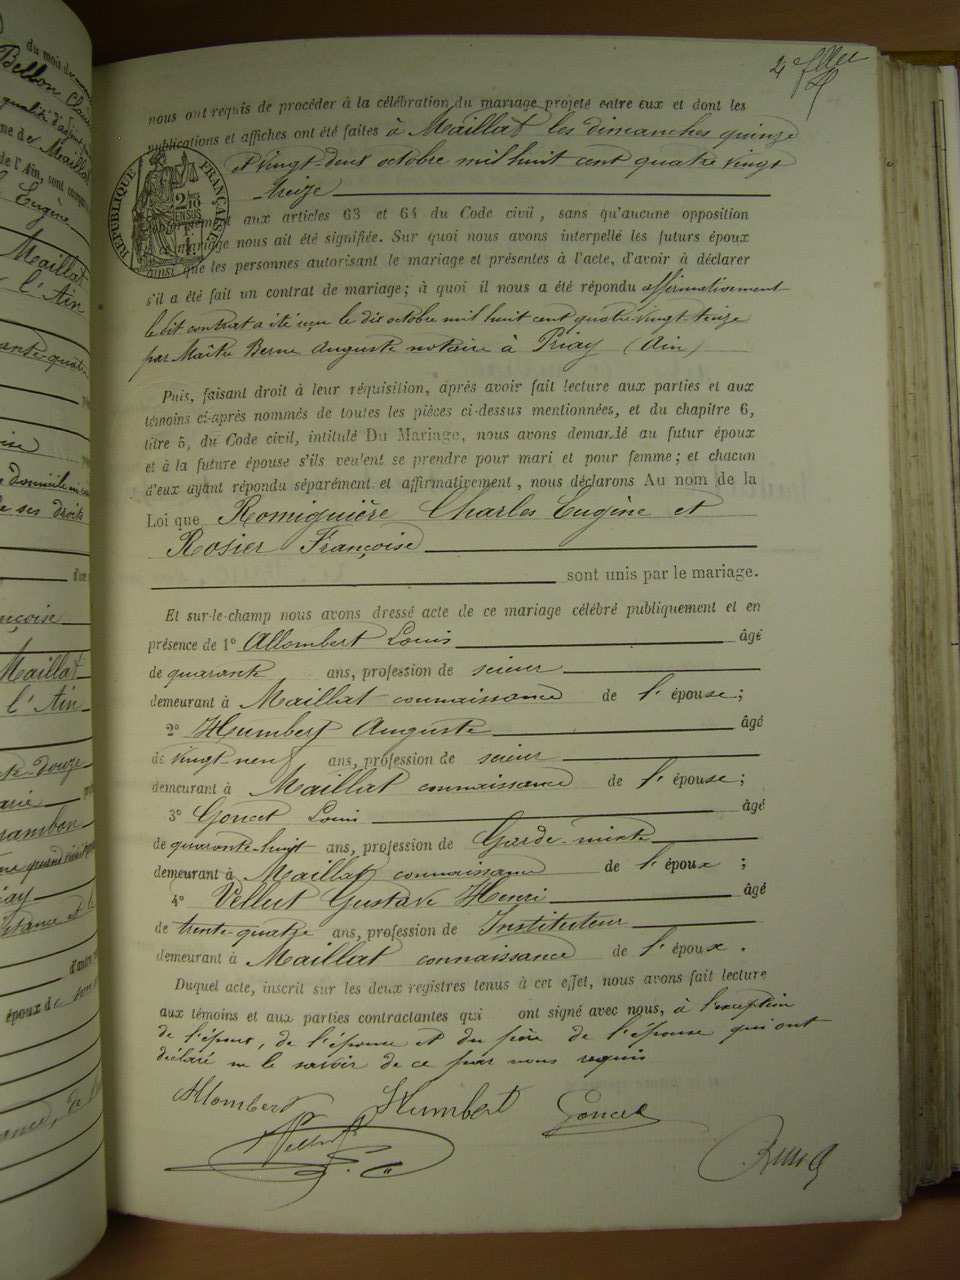 du mois de
Bellon Clai
qualité d'
me de Maillat
de l'Ain, sont
Eugène
Maillat
l'Ain
ante-quatre
domicile
de ses droits
d'un
nçoise
Maillat
l'Ain
douze
arie
rambon
époux de
2e flle
nous ont requis de procéder à la célébration du mariage projeté entre eux et dont les
publications et affiches ont été faites à Maillat les dimanches quinze
et vingt-deux octobre mil huit cent quatre vingt
treize
RÉPUBLIQUE FRANÇAISE
2/10 EN SUS
aux articles 63 et 64 du Code civil, sans qu'aucune opposition
mariage nous ait été signifiée. Sur quoi nous avons interpellé les futurs époux
ainsi que les personnes autorisant le mariage et présentes à l'acte, d'avoir à déclarer
s'il a été fait un contrat de mariage; à quoi il nous a été répondu affirmativement
le dit contrat a été reçu le dix octobre mil huit cent quatre-vingt-treize
par Maître Berne Auguste notaire à Priay (Ain)
Puis, faisant droit à leur réquisition, après avoir fait lecture aux parties et aux
témoins ci-après nommés de toutes les pièces ci-dessus mentionnées, et du chapitre 6,
titre 5, du Code civil, intitulé Du Mariage, nous avons demandé au futur époux
et à la future épouse s'ils veulent se prendre pour mari et pour femme; et chacun
d'eux ayant répondu séparément et affirmativement, nous déclarons Au nom de la
Loi que Romiguière Charles Eugène et
Rosier Françoise
sont unis par le mariage.
Et sur-le-champ nous avons dressé acte de ce mariage célébré publiquement et en
présence de 1° Allombert Louis âgé
de quarante ans, profession de scieur
demeurant à Maillat connaissance de l'épouse;
2° Humbert Auguste âgé
de vingt-neuf ans, profession de scieur
demeurant à Maillat connaissance de l'épouse;
3° Goncet Louis âgé
de quarante-huit ans, profession de Garde-mixte
demeurant à Maillat connaissance de l'époux;
4° Vellut Gustave Henri âgé
de trente-quatre ans, profession de Instituteur
demeurant à Maillat connaissance de l'époux.
Duquel acte, inscrit sur les deux registres tenus à cet effet, nous avons fait lecture
aux témoins et aux parties contractantes qui ont signé avec nous, à l'exception
de l'époux, de l'épouse et du père de l'épouse qui ont
déclaré ne le savoir de ce par nous requis
Allombert Humbert Goncet
Vellut